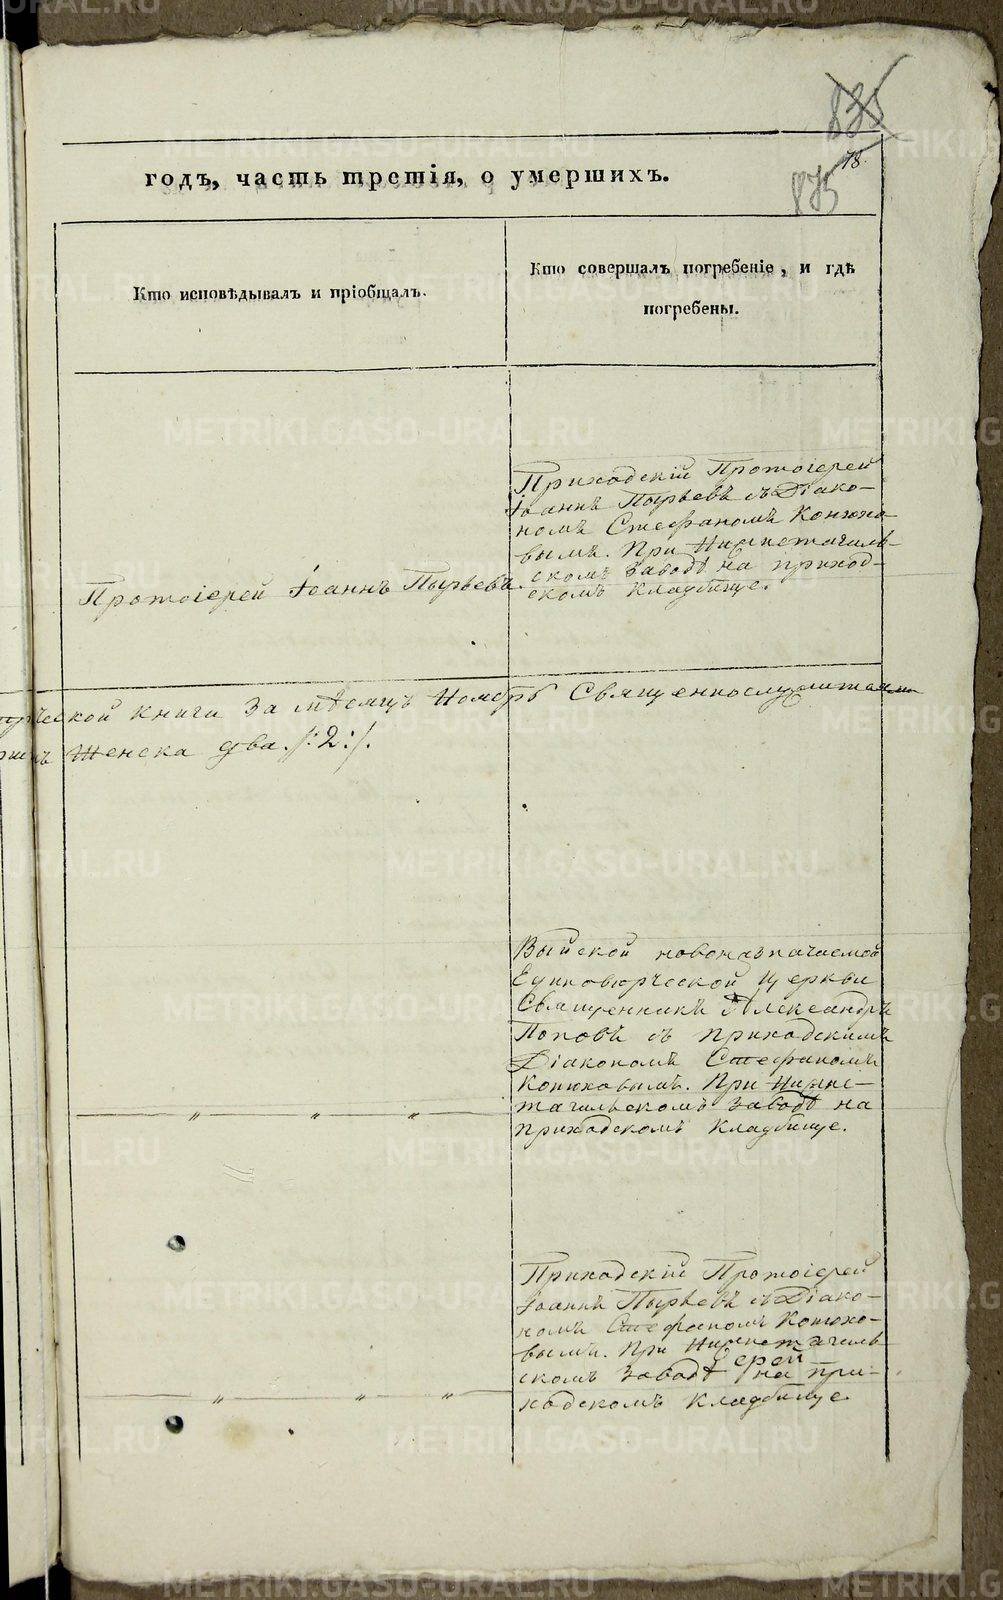 METRIKI.GASO-URAL.RU
835
78.
годъ, часть третія, о умершихъ.
875
Кто исповѣдывалъ и пріобщалъ.
Кто совершалъ погребеніе, и гдѣ
погребены.
Приходскій Протоіерей
Іоаннъ Пырьевъ съ Діако-
номъ Стефаномъ Конюхо-
вымъ. При Нижнетагиль-
скомъ заводѣ на приход-
скомъ кладбище.
Протоіерей Іоаннъ Пырьевъ.
книги за мѣсяцъ Ноябрь Священнослужителями
Женска два. /:2:/.
Выйской новоназначаемой
Единовѣрческой Церкви
Священникъ Александръ
Поповъ съ приходскимъ
Діакономъ Стефаномъ
Конюховымъ. При Нижне-
тагильскомъ заводѣ на
приходскомъ кладбище.
— „ — „ — „ —
Приходскій Протоіерей
Іоаннъ Пырьевъ съ Діако-
номъ Стефаномъ Конюхо-
вымъ. При Нижнетагиль-
скомъ заводѣ на при-
ходскомъ кладбище.
— „ — „ — „ —